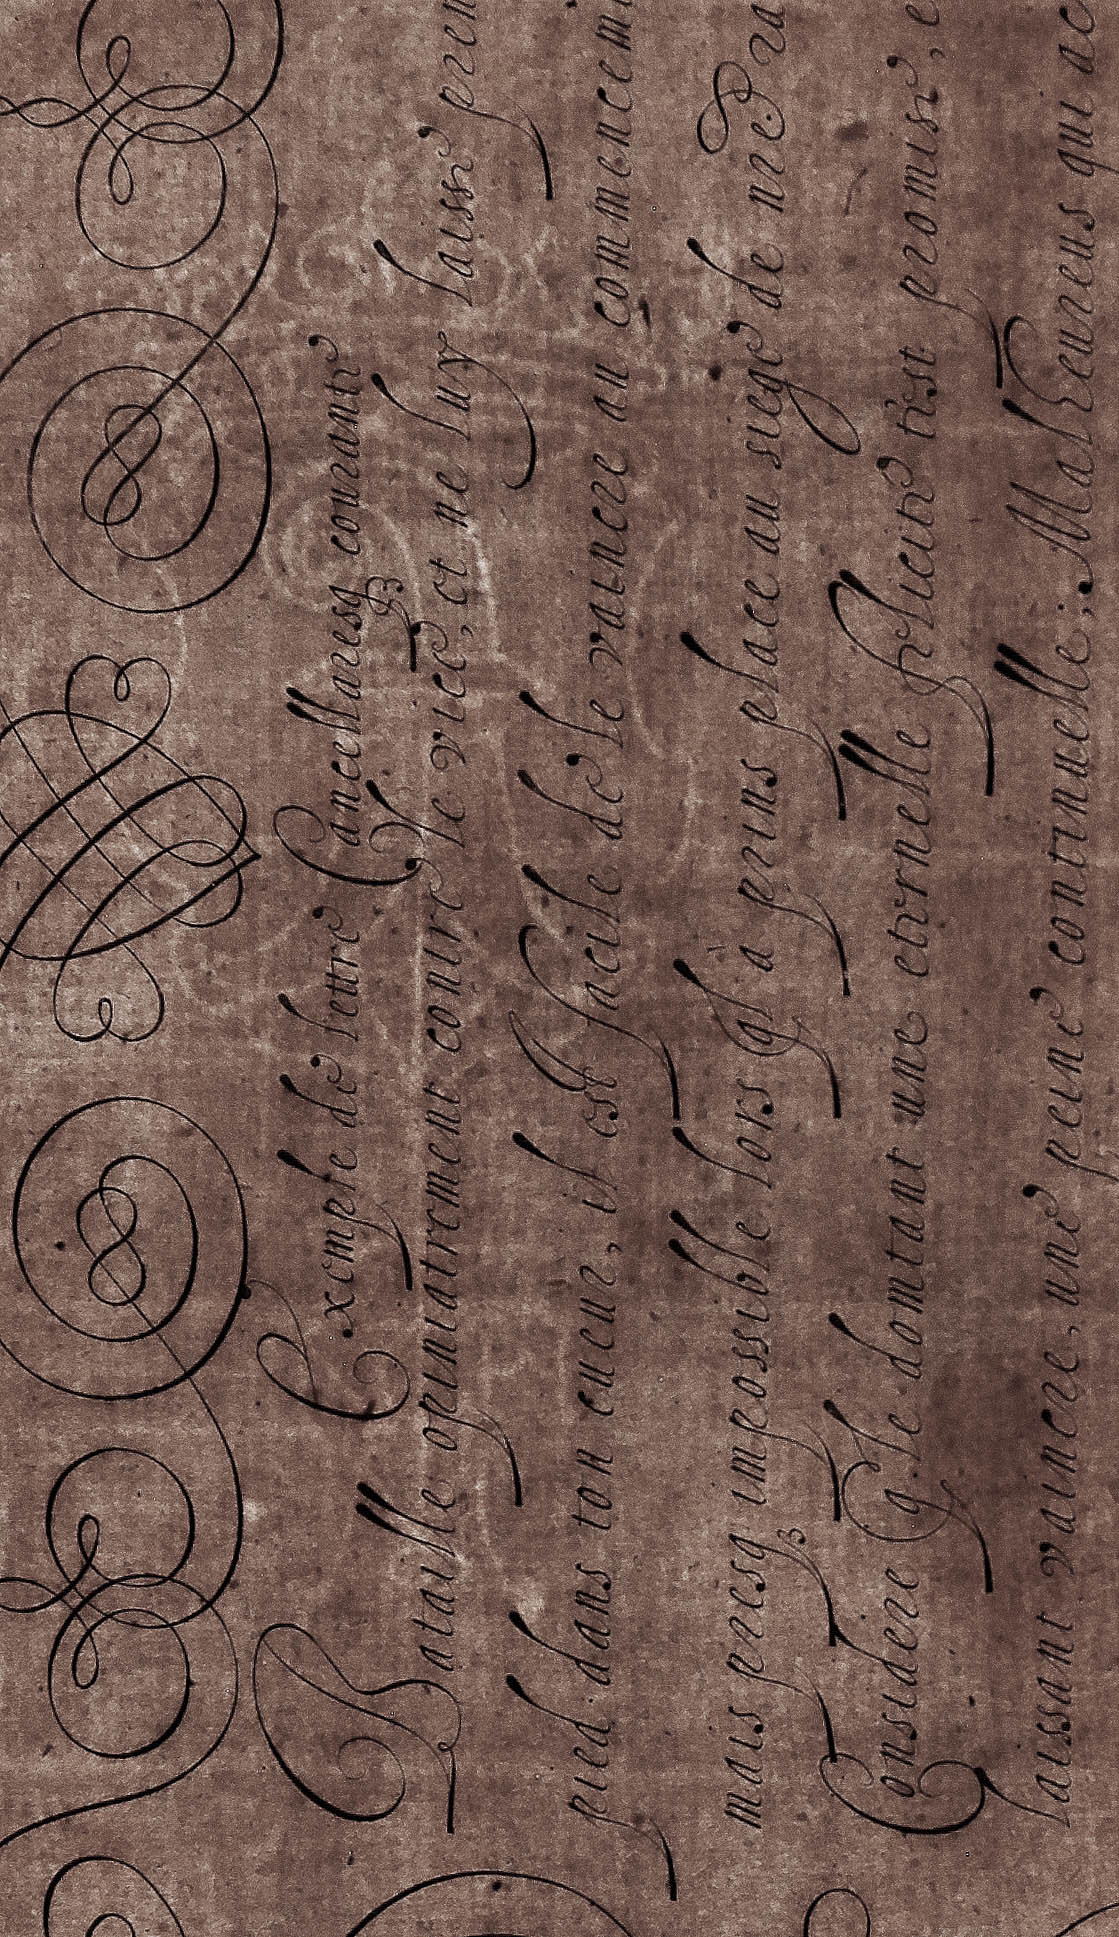 Exemple de lettre Cancellaresq courante
Bataille opiniatrement contre le vice, et ne luy laisse pren
pied dans ton cueur, il est facile de le vaincre au commencem
mais presq impossible lors ql a prins place au siege de nre
Considere q le domtant une eternelle felicite t'est promise, e
laissant vaincre, une peine continuelle; Malheureus qui ac